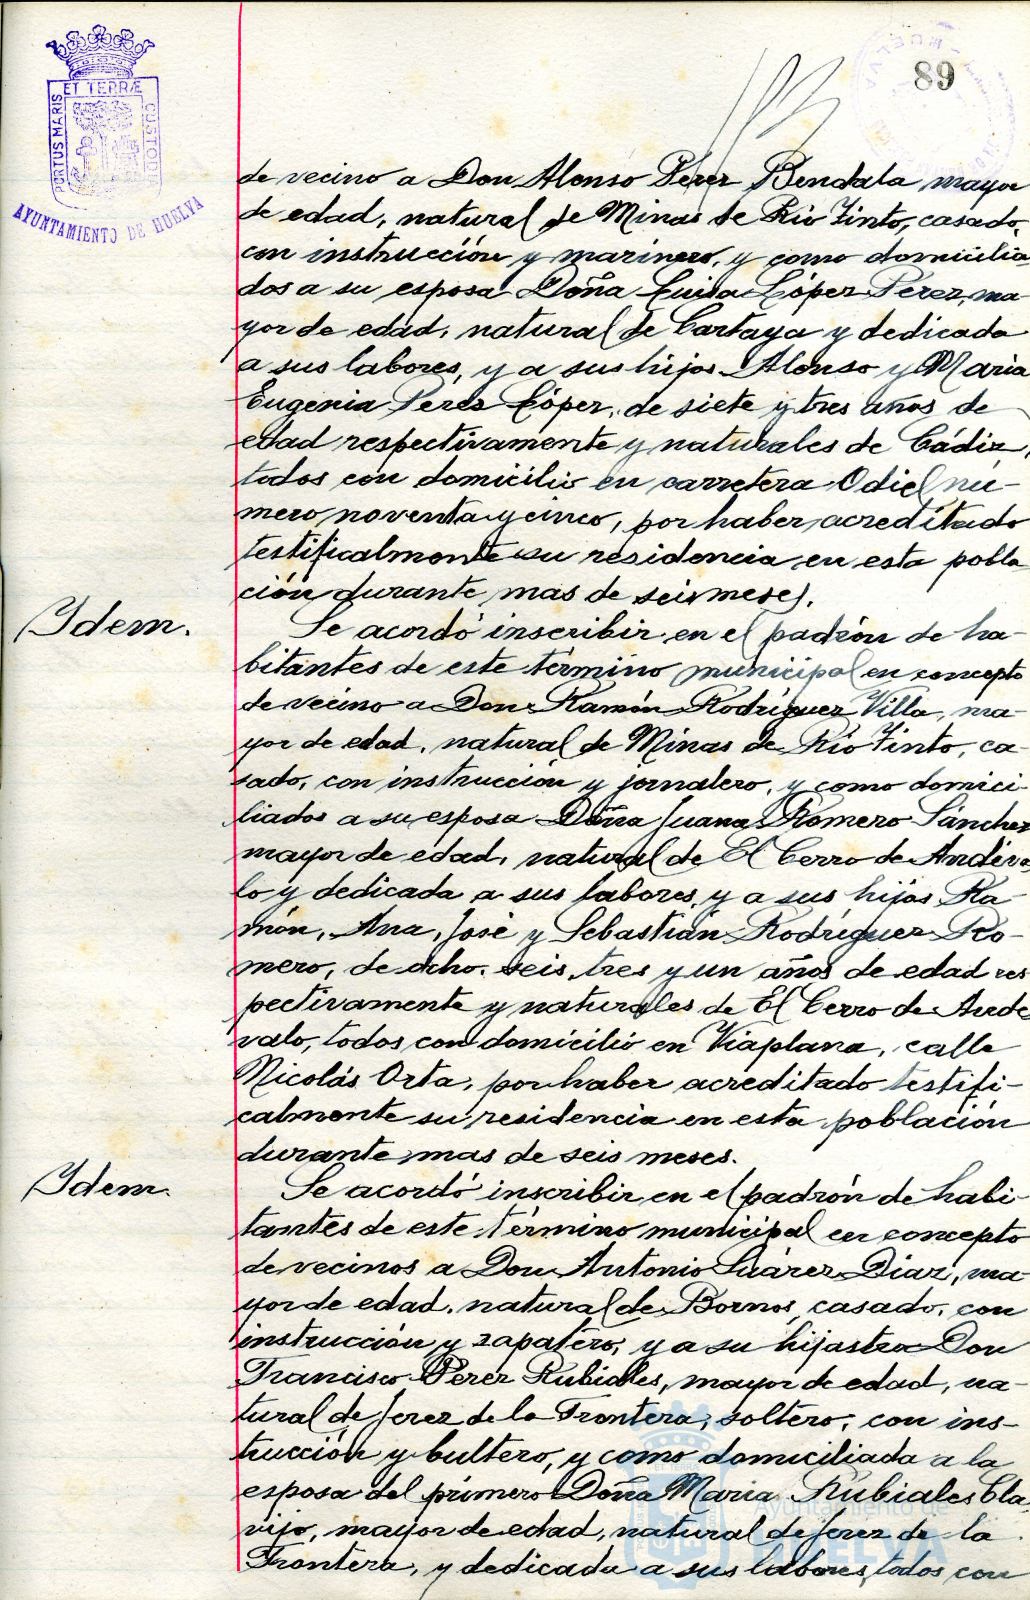 89
ET TERRÆ
PORTUS MARIS
CUSTODIA
AYUNTAMIENTO DE HUELVA
de vecino a Don Alonso Pérez Bendala mayor
de edad, natural de Minas de Rio Tinto, casado,
con instrucción y marinero, y como domicilia
dos a su esposa Doña Luisa López Pérez, ma
yor de edad, natural de Cartaya y dedicada
a sus labores, y a sus hijos Alonso y Maria
Eugenia Peres López, de siete y tres años de
edad respectivamente y naturales de Cádiz,
todos con domicilio en carretera Odiel nú-
mero noventa y cinco, por haber acreditado
testificalmente su residencia en esta pobla
ción durante mas de seis meses.
Ydem.
Se acordó inscribir en el padrón de ha-
bitantes de este término municipal en concepto
de vecino a Don Ramón Rodriguez Villa, ma-
yor de edad, natural de Minas de Rio Tinto, ca-
sado, con instrucción y jornalero, y como domici-
liados a su esposa Doña Juana Romero Sánchez
mayor de edad, natural de El Cerro de Andéva
lo y dedicada a sus labores, y a sus hijos Ra-
món, Ana, José y Sebastián Rodríguez Ro-
mero, de ocho, seis, tres y un años de edad res
pectivamente y naturales de El Cerro de Ande
valo, todos con domicilio en Viaplana, calle
Nicolás Orta, por haber acreditado testifi-
calmente su residencia en esta población
durante mas de seis meses.
Ydem.
Se acordó inscribir en el padrón de habi-
tantes de este término municipal en concepto
de vecinos a Don Antonio Suárez Diaz, ma-
yor de edad, natural de Bornos, casado, con
instrucción y zapatero, y a su hijastro Don
Francisco Perez Rubiales, mayor de edad, na-
tural de Jerez de la Frontera, soltero, con ins-
trucción y bultero, y como domiciliada a la
esposa del primero Doña Maria Rubiales Cla
vijo, mayor de edad, natural de Jerez de la
Frontera, y dedicada a sus labores, todos con
Ayuntamiento de
HUELVA